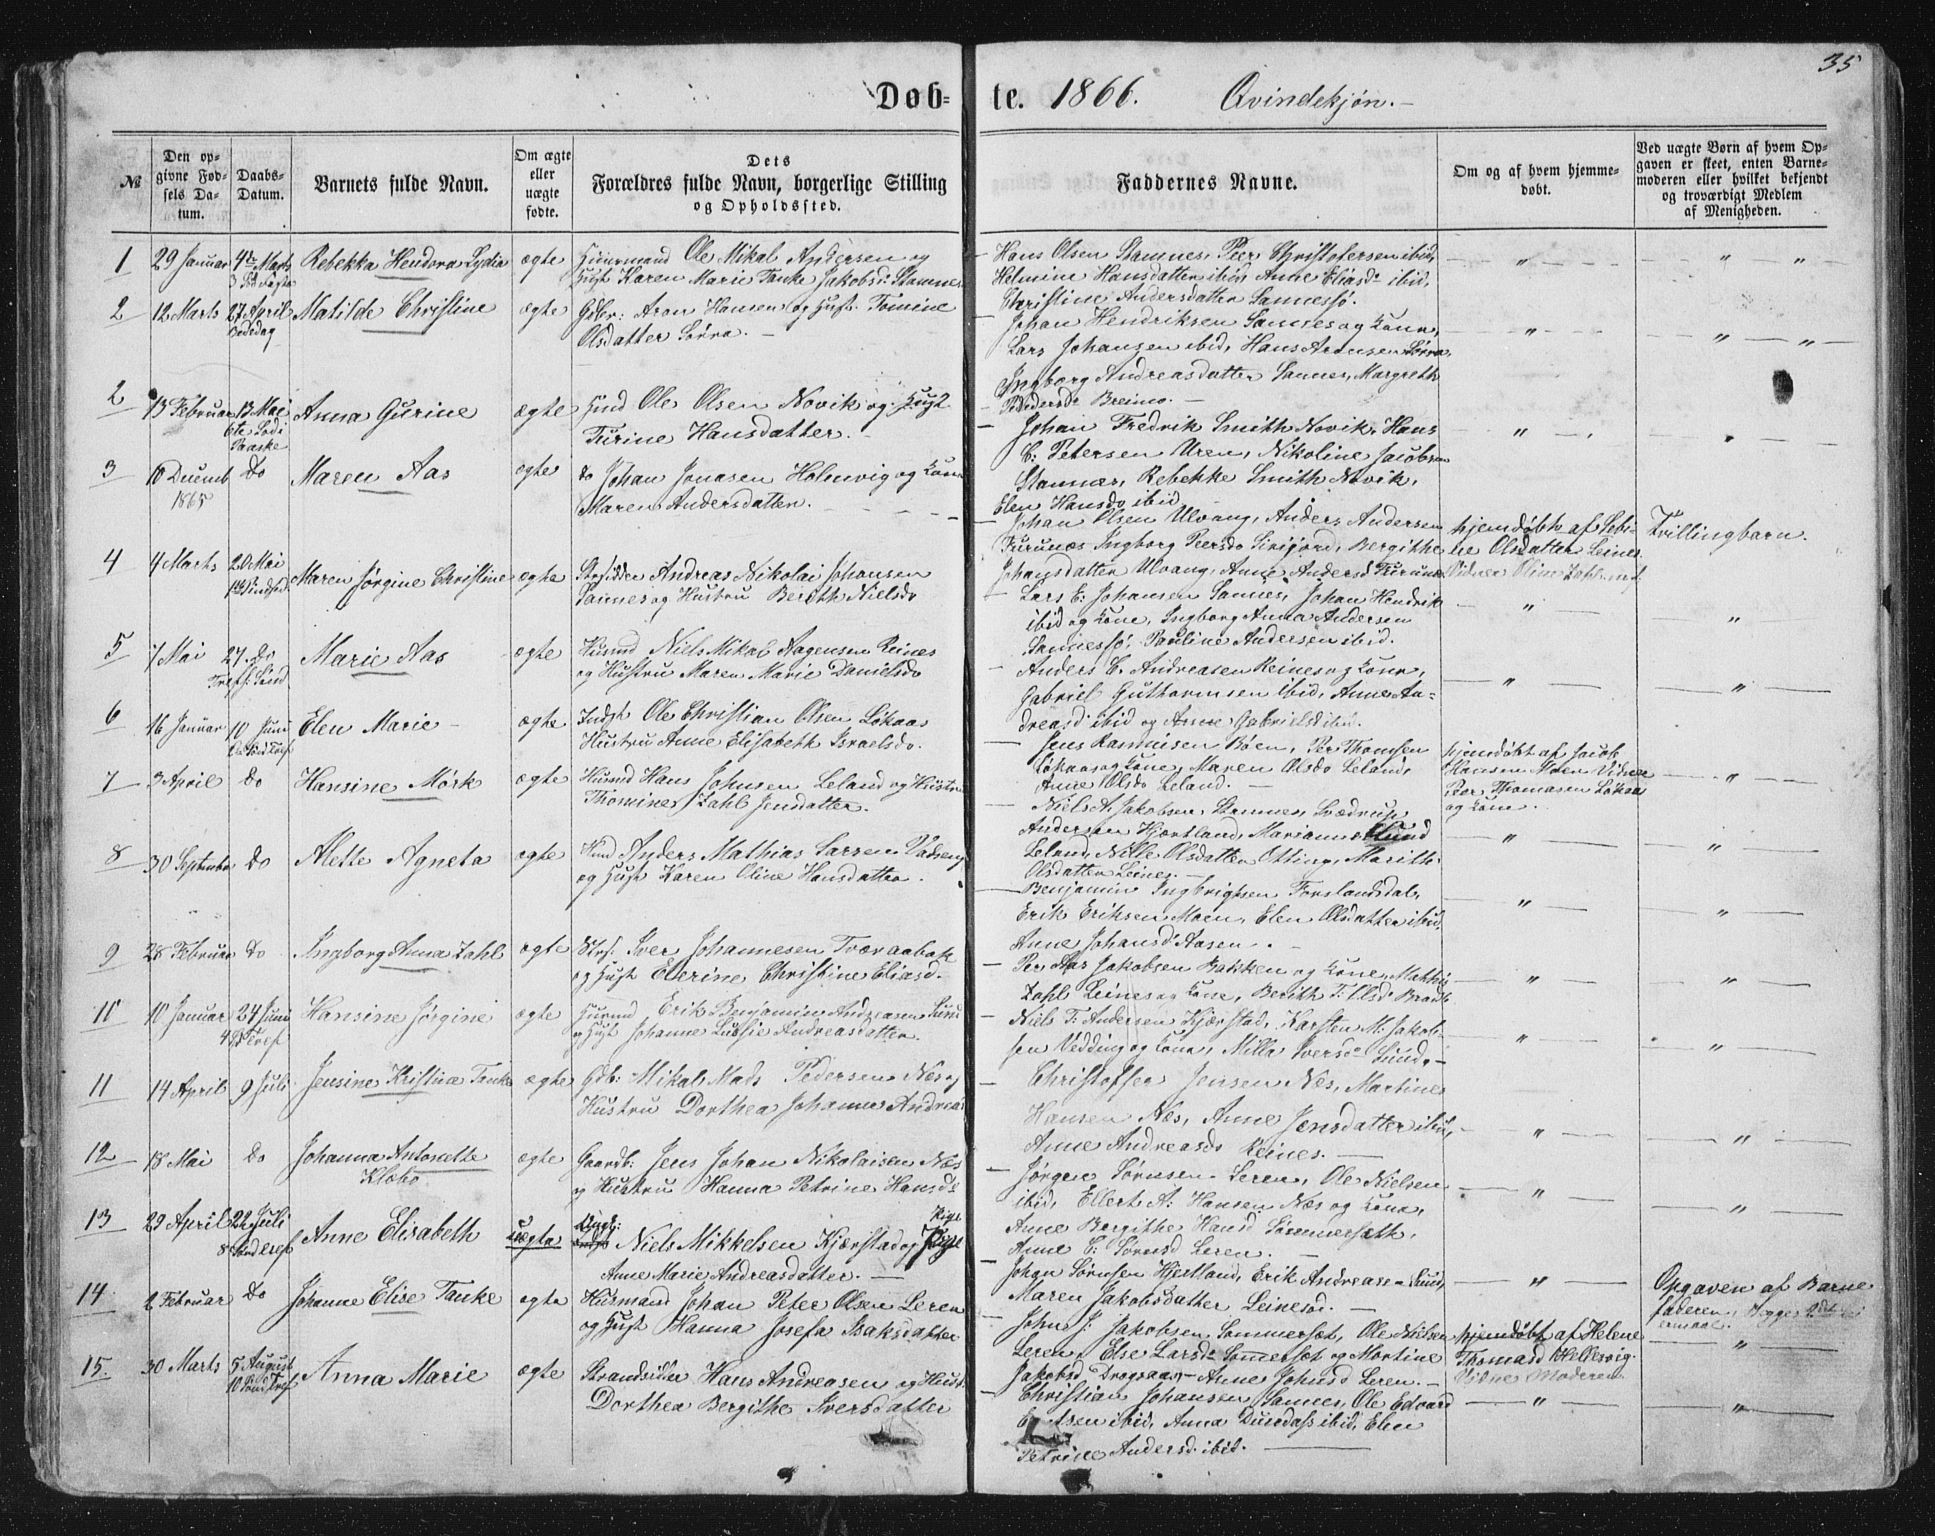 35
Døbte. 1866. Qvindekjøn.-
№
Den opgivne Fødsels Datum.
Daabs-Datum.
Barnets fulde Navn.
Om ægte eller uægte fødte.
Dets Forældres fulde Navn, borgerlige Stilling og Opholdssted.
Faddernes Navne.
Om og af hvem hjemmedøbt.
Ved uægte Børn af hvem Opgaven er skeet, enten Barnemoderen eller hvilket bekjendt og troværdigt Medlem af Menigheden.
1 29 Januar 4de Marts Rebekka Lydia ægte Ole Mikal Andersen og
Hust Karen Marie Tanke Jakobsd. Stamnes
Hans Olsen Stamnes, Peer Christofersen ibid,
Helmine Hansdatter ibid, Anne Eliasd ibid,
Christine Andersdatter Sannessø.
2 12 Marts 27 April Matilde Christine ægte Gdbr: Aron Hansen og Hust. Tomine
Bededag
Olsdatter Sørra -
Johan Hendriksen Sannes og Kone,
Lars Johansen ibid, Hans Aronsen Sørra,
Ingborg Andreasdatter Sannes, Margreth
Pedersd Breimo. -
2 13 Februar 13 Mai Anna Gurine ægte Ole Olsen Novik og Hust
6te Paaske
Turine Hansdatter.
Johan Fredrik Smith Novik, Hans
C. Petersen Uren, Nikoline Jacobsen
Stamnes, Rebekke Smith Novik,
Elen Hansd ibid
3 10 Decemb do Maren Aas ægte do Johan Jonasen Holmvig og Kone
1865
Maren Andersdatter.
Johan Olsen Ulvang, Anders Andersen
Kurunæs, Ingborg Peersd, Bergithe
Johansdatter Ulvang, Anne Andersd
Hjemdøbt af
Olsdatter Leines.
Vidner Oline Zahl
Tvillingbarn.
4 4 Marts 20 Mai Maren Jørgine Christine ægte Andreas Nikolai Johansen
Sannes og Hustru Berith Nielsd
Lars E. Johansen Sannes, Johan Hendrik
ibid og Kone, Ingborg Anna Andersen
Sannessø, Pauline Andersen ibid.
5 7 Mai 27 do Marie Aas ægte Husmd Niels Mikal Reines
og Hustru Maren Marie Danielsd
Anders C. Andreasen Reines og Kone,
Gabriel Guthormsen ibid, Anne Andreasd ibid og Anne Gabrielsd ibid.
6 16 Januar 10 Juni Elen Marie - ægte Indst Ole Christian Olsen Løkaas
Hustru Anne Elisabeth Israelsd.
Jens Rasmusen Bøen, Per Thomsen
Løkaas og Kone, Maren Olsd Leland,
Anne Olsd Leland. -
7 3 April do Hansine Mørk ægte Husmd Hans Johnsen Leland og Hustru
Thomine Zahl Jensdatter.
Niels A. Jakobsen, Stamnes,
Andersen Hjærtland, Marianne Lund
Leland, Nille Olsdatter Otting, Marith
Olsdatter Leines. -
Hjemdøbt af Jacob
Hansen Moen Vidner
Peer Thomasen Løkaas
og Kone.
8 30 September do Alette Agneta ægte Anders Mathias Larsen
og Hust Karen Oline Hansdatter.
Benjamin Ingbrigtsen Forslandsdal,
Erik Eriksen Moen, Elen Olsdatter ibid,
Anne Johansd Aasen. -
9 28 Februar do Ingborg Anna Zahl ægte Iver Johannesen Tværaabak
og Hust Elerine Christine Eliasd.
Per Aas Jakobsen Bakken og Kone, Mathis
Zahl Reines og Kone, Berith T. Olsd
10 10 Januar 24 Juni Hansine Jørgine ægte Husmd Erik Benjamin Andreasen Sund
og Hust Johanne Andreasdatter.
Niels T. Andersen Kjærstad, Karsten M. Jakobsen Vedding og Kone, Milla Iversd Sund. -
11 14 April 9 Juli Jensine Kristine Tanke ægte Gdb: Mikal Mads Pedersen Næs og
Hustru Dorthea Johanne Andreasd
Christoffer Jensen Næs, Martines
Hansen Næs, Anne Jensdatter ibid,
Anne Andreasd Reines. -
12 18 Mai do Johanna Antonette ægte Gaardb: Jens Johan Nikolaisen Næs
Klæbo
og Hustru Hanna Petrine Hansd
Jørgen Sørensen Leren, Ole Nielsen
ibid, Ellert A. Hansen Næs og Kone,
Anne Bergithe Hansd Sommerseth,
Anne C. Sørensd Leren.
13 29 April 22 Juli Anne Elisabeth uægte Ungk: Niels Mikkelsen Kjærstad og Pige
Anne Marie Andreasdatter. -
Johan Sørensen Hjertland, Erik Andreasen Sund,
Maren Jakobsdatter Leinesod. -
Opgaven af Barnefaderen
14 2 Februar do Johanne Elise Tanke ægte Husmand Johan Peter Olsen Leren
og Hust Hanna Josefa Isaksdatter
John J. Jakobsen Sommerset, Ole Nielsen
Leren, Else Larsd Sommerset og Martine
Jakobsd Drogsaas, Anne Johnsd Leren. -
Hjemdøbt af Helene
Thomasd Hellesvig.
Vidne Moderen
15. 30 Marts 5 August Anna Marie ægte Strandsidder Hans Andreasen og Hust.
Dorthea Bergithe Iversdatter
Christian Johansen Sannes, Ole Edvard
ibid, Anna ibid, Elen
Petrine Andersd. ibid.